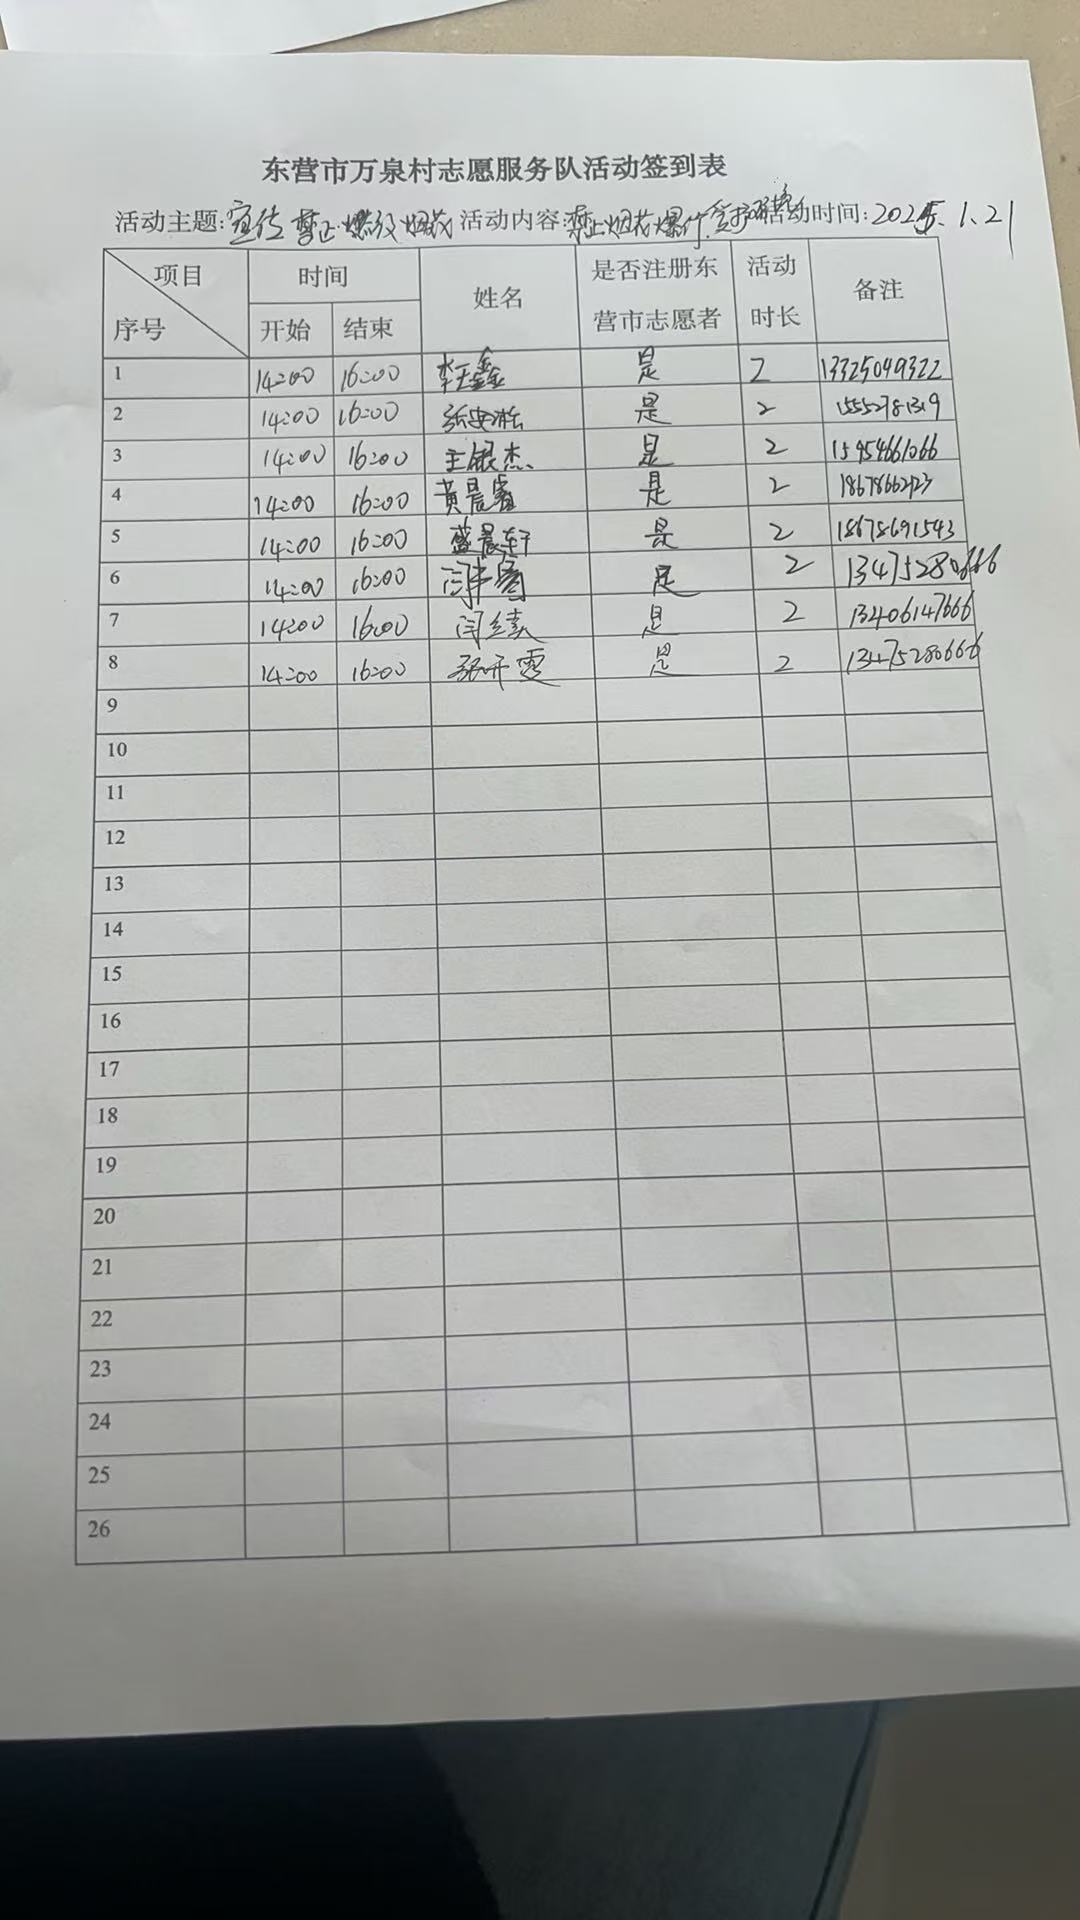 东营市万泉村志愿服务队活动签到表
活动主题:宣传禁止燃放烟花 活动内容:禁止烟花爆竹 活动时间:2025.1.21
项目 时间 姓名 是否注册东营市志愿者 活动时长 备注
序号 开始 结束
1 14:00 16:00 是 2 13325049322
2 14:00 16:00 是 2 15552781319
3 14:00 16:00 王银杰 是 2 15954661066
4 14:00 16:00 黄晨睿 是 2
5 14:00 16:00 盛晨轩 是 2 18678691543
6 14:00 16:00 是 2 13475280666
7 14:00 16:00 闫续 是 2 13406147666
8 14:00 16:00 是 2 13475280666
9
10
11
12
13
14
15
16
17
18
19
20
21
22
23
24
25
26